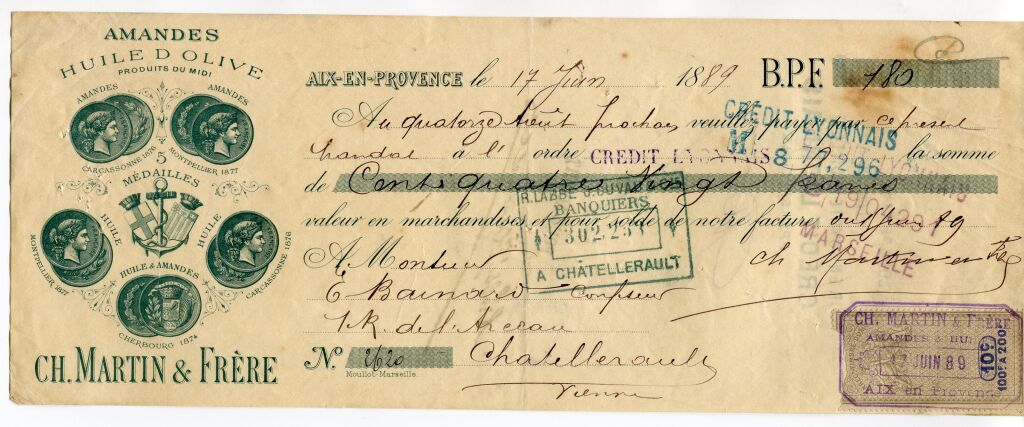 AMANDES
HUILE D'OLIVE
PRODUITS DU MIDI
AMANDES
AMANDES
CARCASSONNE 1876
MONTPELLIER 1877
5
MÉDAILLES
HUILE
HUILE
MONTPELLIER 1877
CARCASSONNE 1876
HUILE & AMANDES
CHERBOURG 1874
CH. MARTIN & FRÈRE
AIX-EN-PROVENCE le 17 Juin 1889 B.P.F. 180
Au quatorze Août prochain veuillez payer par ce présent
mandat à l' ordre CREDIT LYONNAIS la somme
de Cent quatre vingt francs
valeur en marchandises et pour solde de notre facture
A Monsieur
E Confiseur
R. de l'Arceau
No 2620 Chatellerault
Vienne
Moullot-Marseille.
Ch. Martin et Frère
CRÉDIT LYONNAIS
BANQUIERS
302.251
A CHATELLERAULT
MARSEILLE
CH. MARTIN & FRÈRE
AMANDES &
JUIN 89
AIX en Provence
10c
100f A 200f